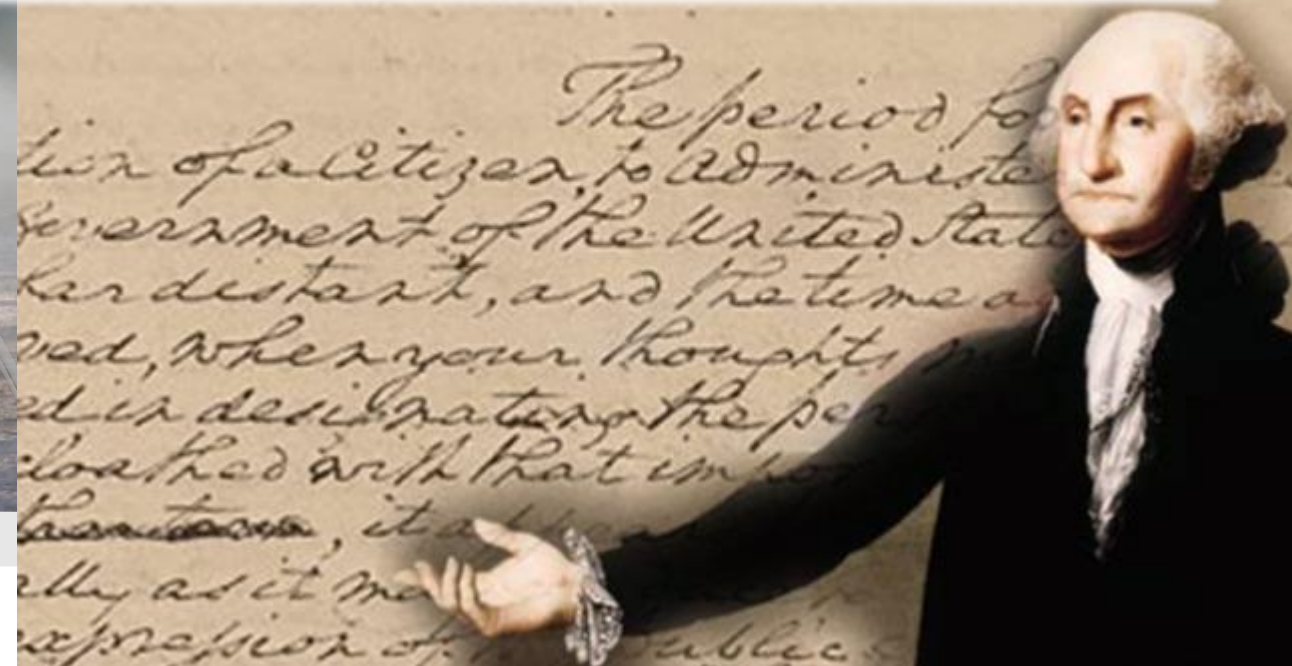 The period fo
tion of a Citizen, to administe
Government of the United State
far distant, and the time a
ved, when your thoughts
ed in designating the per
cloathed with that impor
, it appea
ally as it ma
expression of public